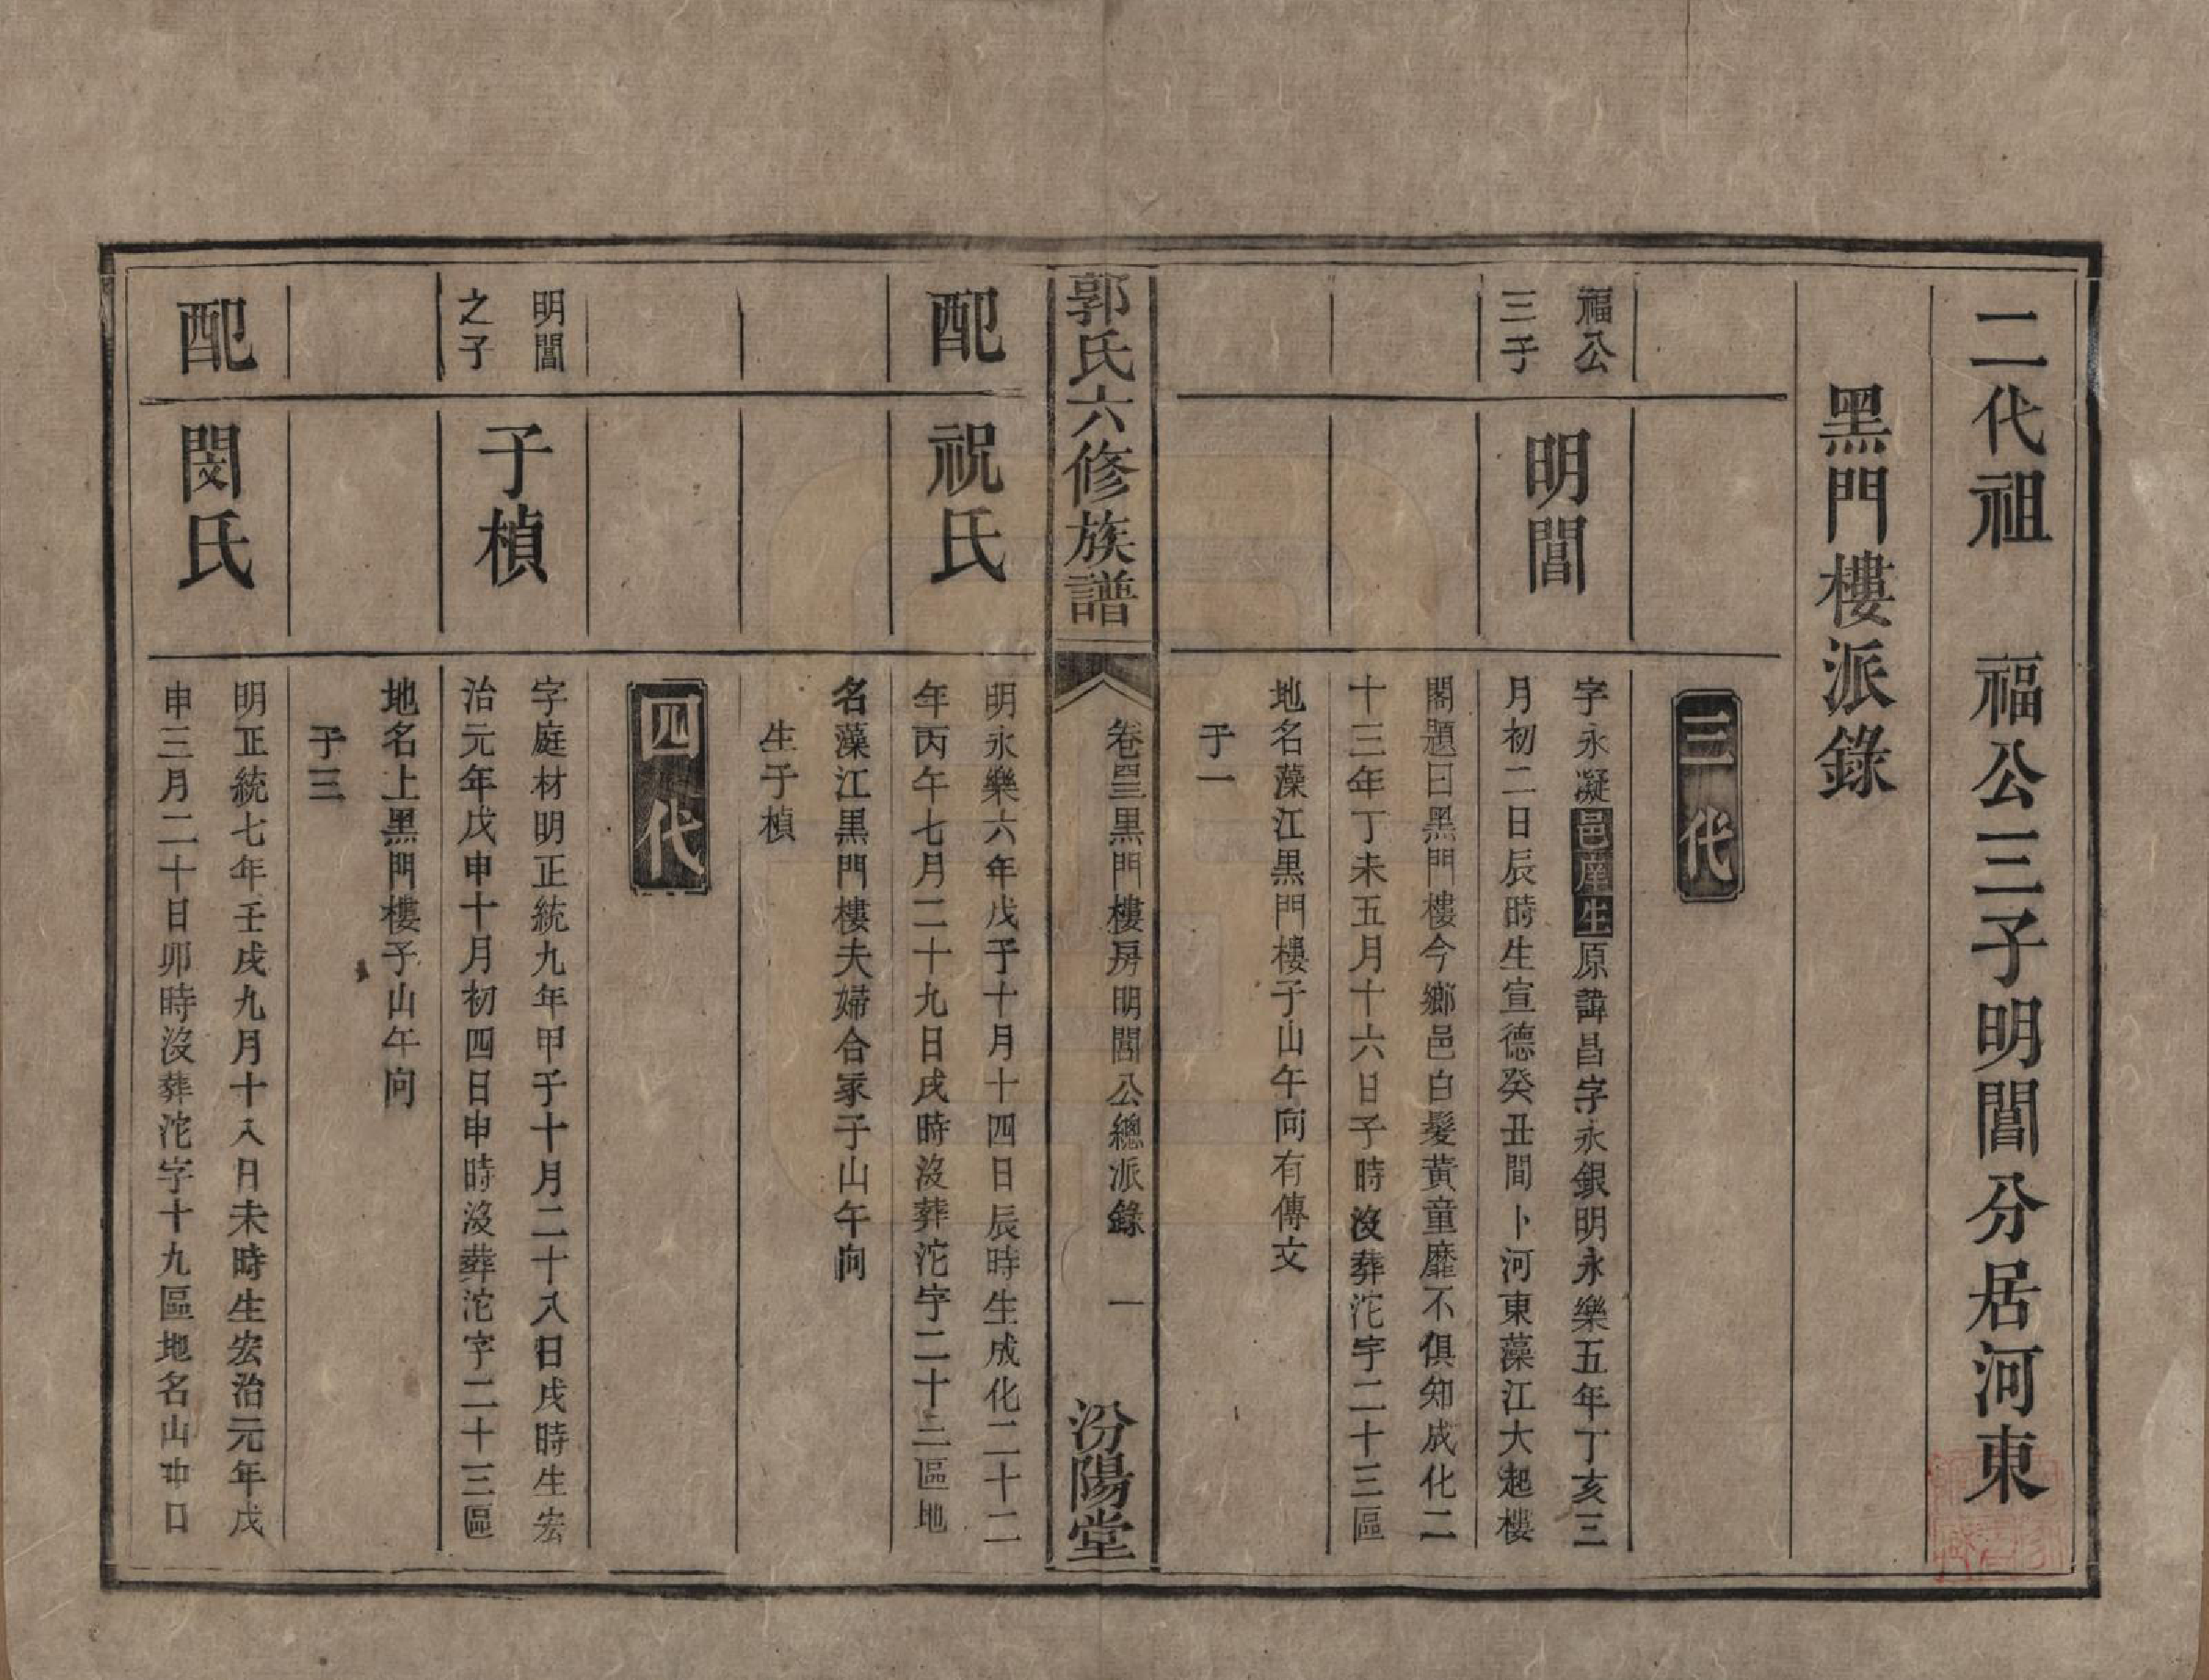 二代祖　福公三子明閶分居河東
黑門樓派錄
三代
福公
三子
明閶
字永凝邑庠生原諱昌字永銀明永樂五年丁亥三
月初二日辰時生宣德癸丑間卜河東藻江大起樓
閣題曰黑門樓今鄉邑白髮黃童靡不俱知成化二
十三年丁未五月十六日子時没葬沱字二十三區
地名藻江黑門樓子山午向有傳文
子一
郭氏六修族譜
卷三黑門樓房明閶公總派錄　一
汾陽堂
配
祝氏
明永樂六年戊子十月十四日辰時生成化二十二
年丙午七月二十九日戌時没葬沱字二十三區地
名藻江黑門樓夫婦合冢子山午向
生子楨
四代
明閶
之子
子楨
字庭材明正統九年甲子十月二十八日戌時生宏
治元年戊申十月初四日申時没葬沱字二十三區
地名上黑門樓子山午向
子三
配
閔氏
明正統七年壬戌九月十八日未時生宏治元年戊
申三月二十日卯時没葬沱字十九區地名山冲口